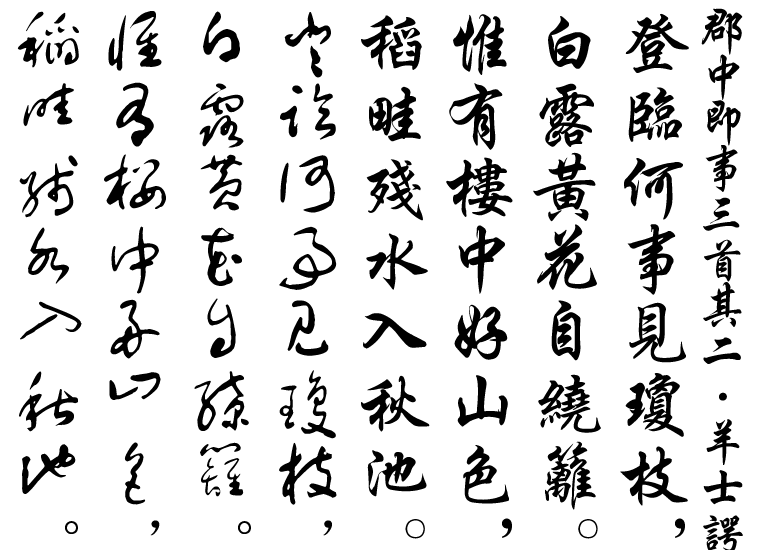 郡中即事三首其二·羊士諤
登臨何事見瓊枝，
白露黃花自繞籬。
惟有樓中好山色，
稻畦殘水入秋池。
登臨何事見瓊枝，
白露黃花自繞籬。
惟有樓中好山色，
稻畦殘水入秋池。